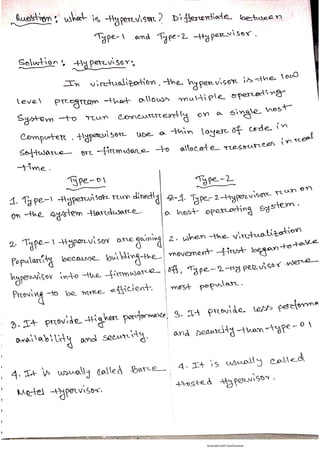 Question: what is Hypervisor? Differentiate between
Type-1 and Type-2 Hypervisor.
Solution: Hypervisor:
In virtualization, the hypervisor is the low
level program that allows multiple operating
System to run concurrently on a single host
Computer. Hypervisor use a thin layer of code in
Software or firmware to allocate resources in real
time.
Type-01
1. Type-1 Hypervisor run directly
on the system Hardware.
2. Type-1 Hypervisor are gaining
Popularity because building the
hypervisor into the firmware
Proving to be more efficient.
3. It provide Higher performance,
availability and security.
4. It is usually called Bare
Metel Hypervisor.
Type-2
1. Type-2 Hypervisor run on
a host operating System.
2. when the virtualization
movement first began to take
off, Type-2 Hypervisor were
most popular.
3. It provide less performa
and security than type-01
4. It is usually called
Hosted Hypervisor.
Scanned with CamScanner